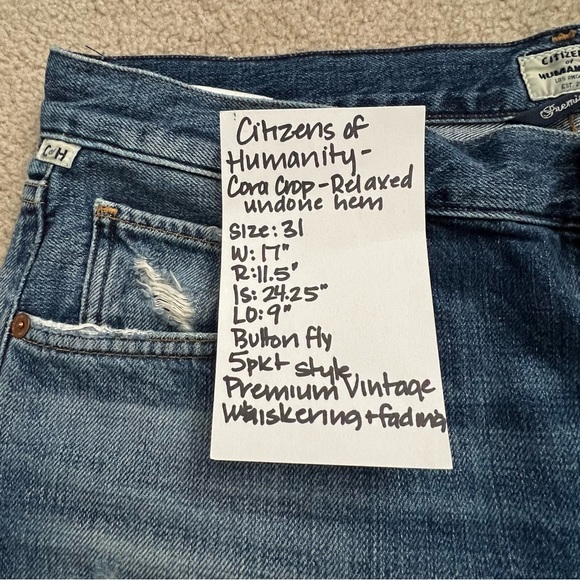 CITIZENS
OF
HUMANITY
LOS ANGELES
EST. 2
Premium
CoH
Citizens of
Humanity -
Cora Crop - Relaxed
undone hem
Size: 31
W: 17"
R: 11.5"
Is: 24.25"
LO: 9"
Button fly
5pkt style
Premium Vintage
Whiskering + fading